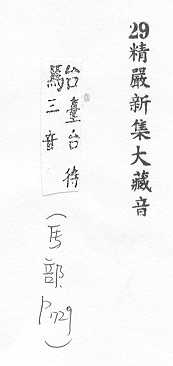 29精嚴新集大藏音
駘臺台待
三音
(馬部P1729)